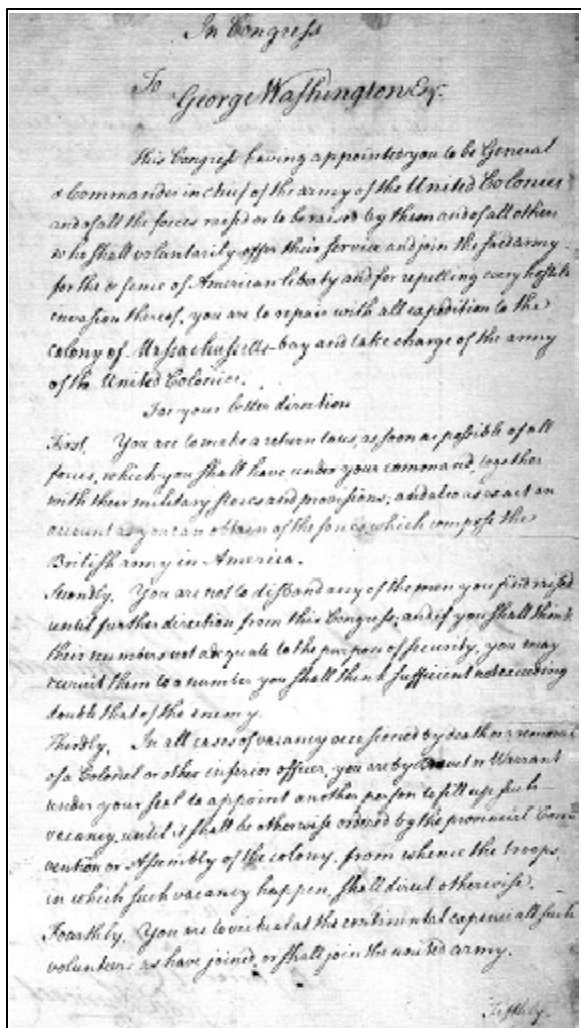 In Congress
To
George Washington Esqr.
This Congress having appointed you to be General
& Commander in chief of the army of the United Colonies
and of all the forces raised or to be raised by them and of all others
who shall voluntarily offer their service and join the said army
for the defence of American liberty and for repelling every hostile
invasion thereof, you are to repair with all expedition to the
colony of Massachusetts-bay and take charge of the army
of the United Colonies.
For your better direction
First. You are to make a return to us, as soon as possible of all
forces, which you shall have under your command, together
with their military stores and provisions; and also as exact an
account as you can obtain of the forces which compose the
British army in America.
Secondly. You are not to disband any of the men you find raised
until further direction from this Congress; and if you shall think
their numbers not adequate to the purpose of security, you may
recruit them to a number you shall think sufficient not exceeding
double that of the enemy.
Thirdly. In all cases of vacancy occasioned by death or a removal
of a Colonel or other inferior officer, you are by Brevet or Warrant
under your seal to appoint another person to fill up such
vacancy, until it shall be otherwise ordered by the provincial Con
vention or Assembly of the colony, from whence the troops,
in which such vacancy happen, shall direct otherwise.
Fourthly. You are to victual at the continental expence all such
volunteers as have joined, or shall join the united army.
Fifthly.